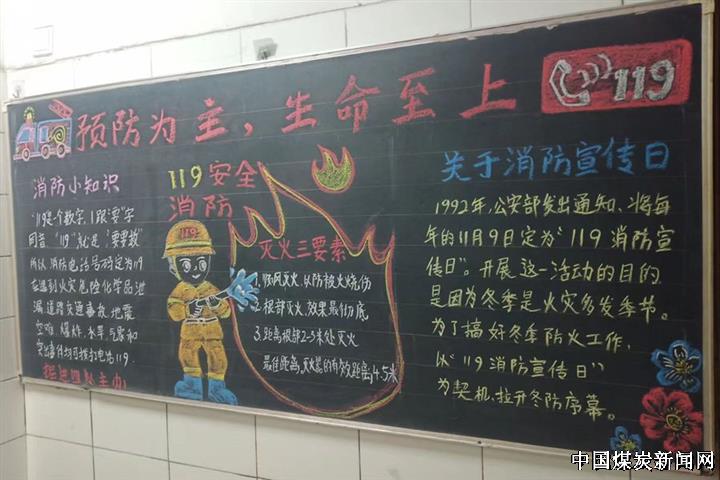 预防为主，生命至上
119
消防小知识
"119是一个数字，1跟"要"字
同音"119"就是"要要救"
所以消防电话号码定为119
在遇到火灾危险化学品泄
漏道路交通事故、地震
空难、爆炸、水旱、气象和
突出事件均可拨打电话119
119安全
消防
119
灭火三要素
1.顺风灭火，以防被火烧伤
2.根部灭火，效果最彻底
3.距离根部2-3米处灭火
最佳距离，灭火器的有效距离4-5米
关于消防宣传日
1992年，公安部发出通知、将每
年的11月9日定为"119消防宣
传日"。开展这一活动的目的
是因为冬季是火灾多发季节。
为了搞好冬季防火工作，
以"119消防宣传日"
为契机、拉开冬防序幕。
中国煤炭新闻网